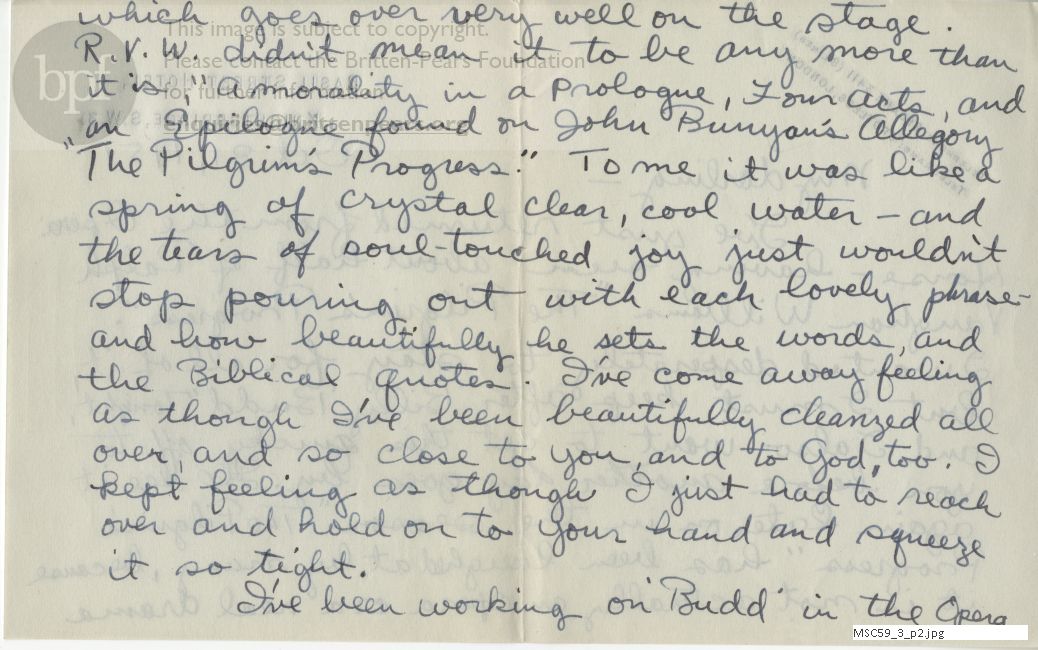 which goes over very well on the stage.
R.V.W. didn't mean it to be any more than
it is, "a morality in a Prologue, Four acts, and
an Epilogue found on John Bunyan's Allegory
"The Pilgrim's Progress." To me it was like a
spring of crystal clear, cool water – and
the tears of soul-touched joy just wouldn't
stop pouring out with each lovely phrase –
and how beautifully he sets the words, and
the Biblical quotes. I've come away feeling
as though I've been beautifully cleanzed all
over, and so close to you, and to God, too. I
kept feeling as though I just had to reach
over and hold on to your hand and squeeze
it so tight.
I've been working on 'Budd' in the Opera
bpf
This image is subject to copyright.
Please contact the Britten-Pears Foundation
for further information.
MSC59_3_p2.jpg